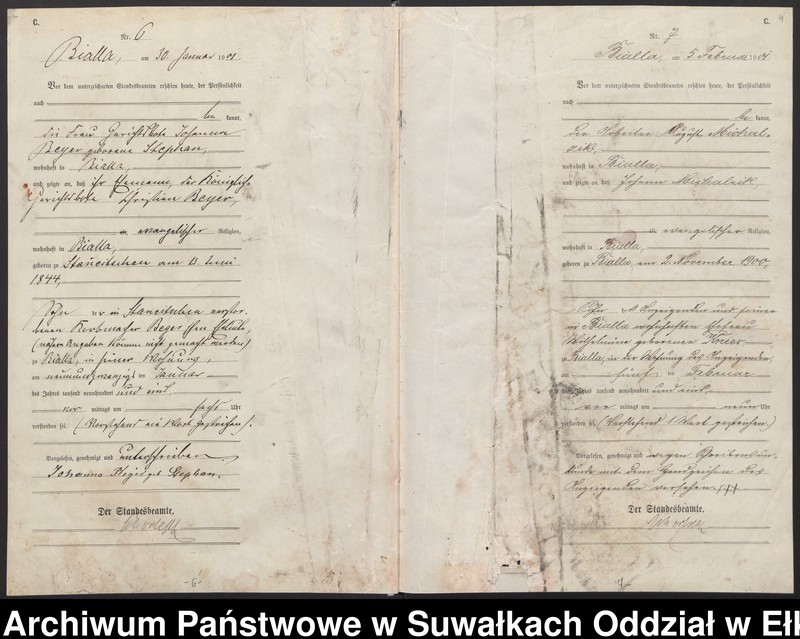 C.
Nr. 6
Bialla, am 30. Januar 1901.
Vor dem unterzeichneten Standesbeamten erschien heute, der Persönlichkeit
nach
be kannt,
die Frau Gerichtsbote Johanna
Beyer geborene Stephan,
wohnhaft in Bialla,
und zeigte an, daß ihr Ehemann, der Königliche
Gerichtsbote Christian Beyer,
evangelischer Religion,
wohnhaft in Bialla,
geboren zu am Juni
1844,
Sohn der in verstor-
benen Beyer'schen Eheleute,
(nähere Angaben können nicht gemacht werden)
zu Bialla, in seiner Wohnung,
am neunundzwanzigsten Januar
des Jahres tausend neunhundert und eins,
vor mittags um sechs Uhr
verstorben sei. (Vorstehend ein Wort gestrichen).
Vorgelesen, genehmigt und unterschrieben
Johanna geb. Stephan.
Der Standesbeamte.
-6-
C.
4
Nr. 7
Bialla, am 5. Februar 1901
Vor dem unterzeichneten Standesbeamten erschien heute, der Persönlichkeit
nach
be kannt,
der Arbeiter August Michal-
zik,
wohnhaft in Bialla,
und zeigte an, daß Johann Michalzik,
evangelischer Religion,
wohnhaft in Bialla,
geboren zu Bialla, am 2. November 1900,
Sohn des Anzeigenden und seiner
in Bialla wohnhaften Ehefrau
Wilhelmine geborenen
zu Bialla, in der Wohnung des Anzeigenden,
am fünften Februar
des Jahres tausend neunhundert und eins,
vor mittags um neun Uhr
verstorben sei. (Vorstehend 1 Wort gestrichen.)
Vorgelesen, genehmigt und wegen Schreibensun-
kunde mit dem Handzeichen des
Anzeigenden versehen. +++
Der Standesbeamte.
Archiwum Państwowe w Suwałkach Oddział w Eł